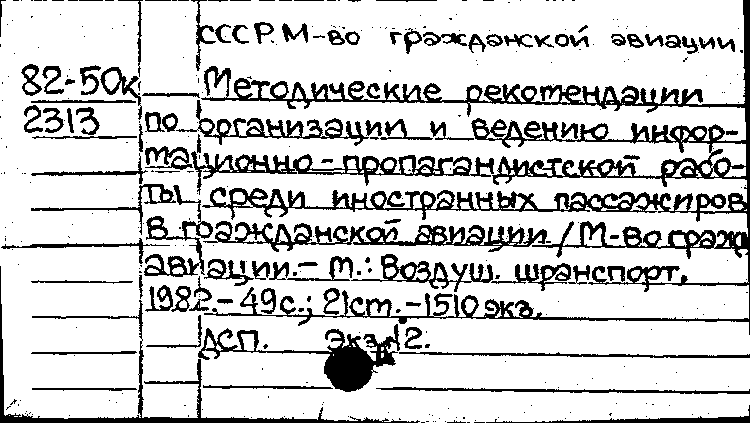 СССР. М-во гражданской авиации.
82-50к Методические рекомендации
2313 по организации и ведению инфор-
мационно-пропагандистской рабо-
ты среди иностранных пассажиров
в гражданской авиации / М-во гражд
авиации. - М.: Воздуш. транспорт,
1982. - 49 с.; 21 см. - 1510 экз.
ДСП. Экз. 2.